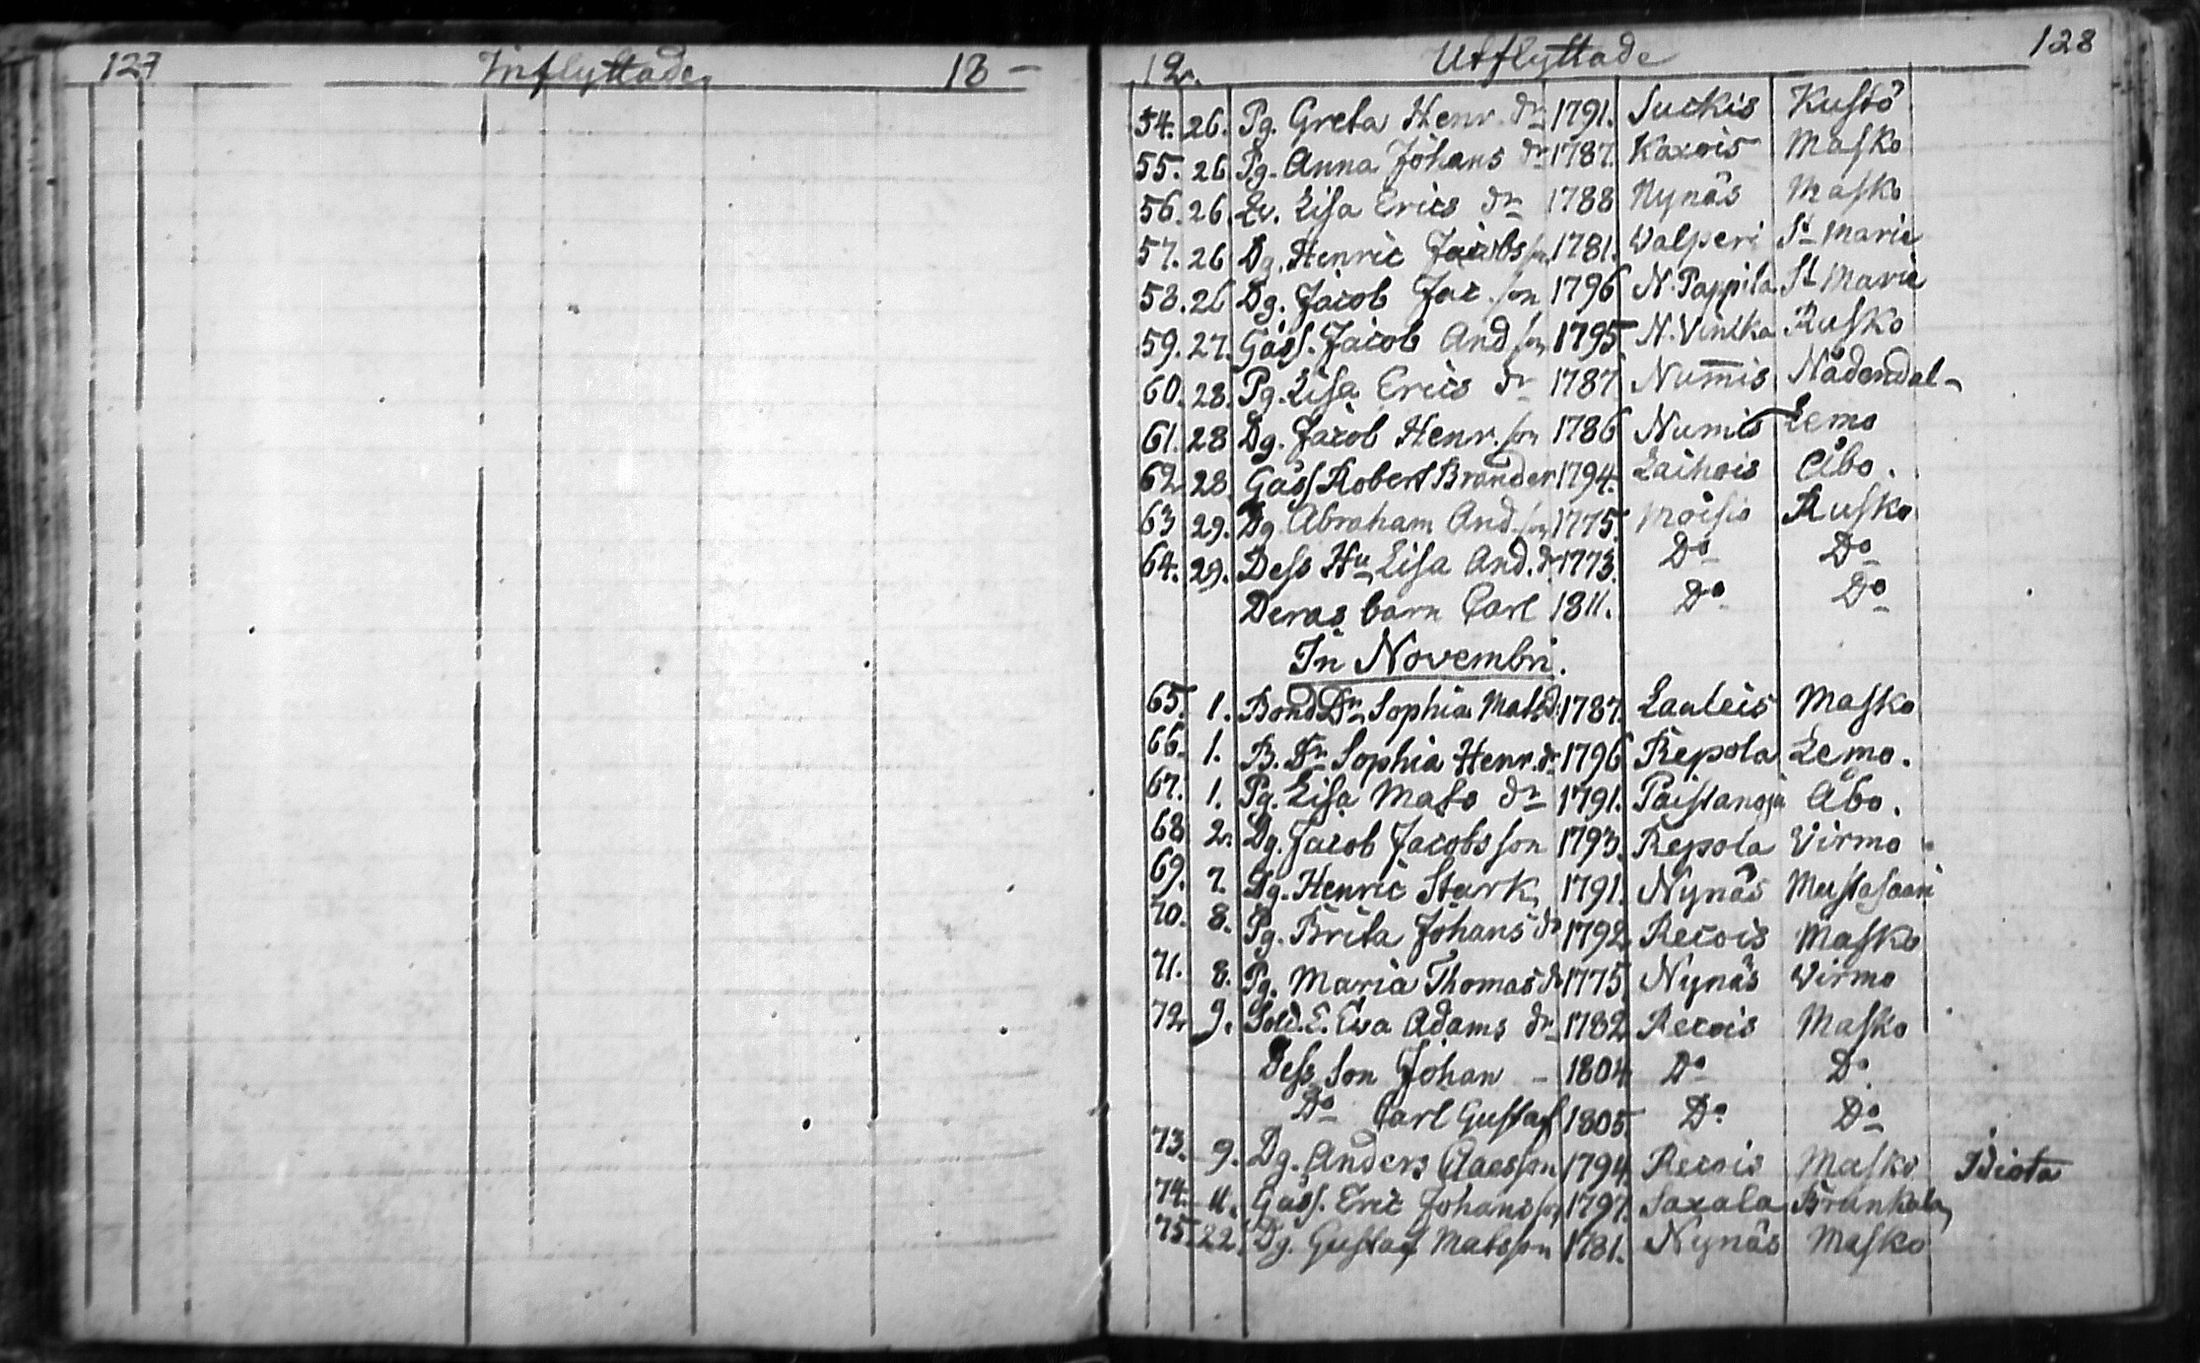 127 Inflyttade 18 —
12. Utflyttade 128
54. 26. Pg. Greta Henr. dr 1791. Suckis Kustö
55. 26. Pg. Anna Johans dr 1787. Kaxois Masko
56. 26. Ev. Lisa Erics dr 1788 Nynäs Masko
57. 26 Dg. Henric Jacobsson 1781. Walperi St Marie
58. 26 Dg. Jacob Jac. son 1796 N. Pappila St Marie
59. 27. Gåss. Jacob And son 1795 N. Vinika Rusko
60. 28. Pg. Lisa Erics dr 1787 Numis Nådendal
61. 28 Dg. Jacob Henr. son 1786 Numis Lemo
62 28 Gåss Robert Brander 1794. Laihois Åbo.
63 29. Dg Abraham And. son 1775. Moisio Rusko
64. 29. Dess Hu Lisa And. dr 1773. Do Do
Deras barn Carl 1811. Do Do
In Novembri.
65. 1. Bond Dr Sophia Mats d. 1787. Lauleis Masko
66. 1. B. Dr Sophia Henr. dr 1796 Repola Lemo.
67. 1. Pg. Lisa Mats dr 1791. Paistanoja Åbo.
68 2. Dg. Jacob Jacobsson 1793. Repola Virmo
69. 7. Dg. Henric Stark 1791. Nynäs Mustasaari
70. 8. Pg. Brita Johans dr 1792 Recois Masko
71. 8. Pg. Maria Thomas dr 1775 Nynäs Virmo
72 9. Sold. E. Eva Adams dr 1782 Recois Masko
Dess son Johan — 1804 Do Do.
Do Carl Gustaf 1805. Do Do
73. 9. Dg. Anders Aaesson 1794 Recois Masko Idiota
74. 11. Gåss. Eric Johansson 1797. Saxala Brunkala
75. 22. Dg. Gustaf Matsson 1781. Nynäs Masko